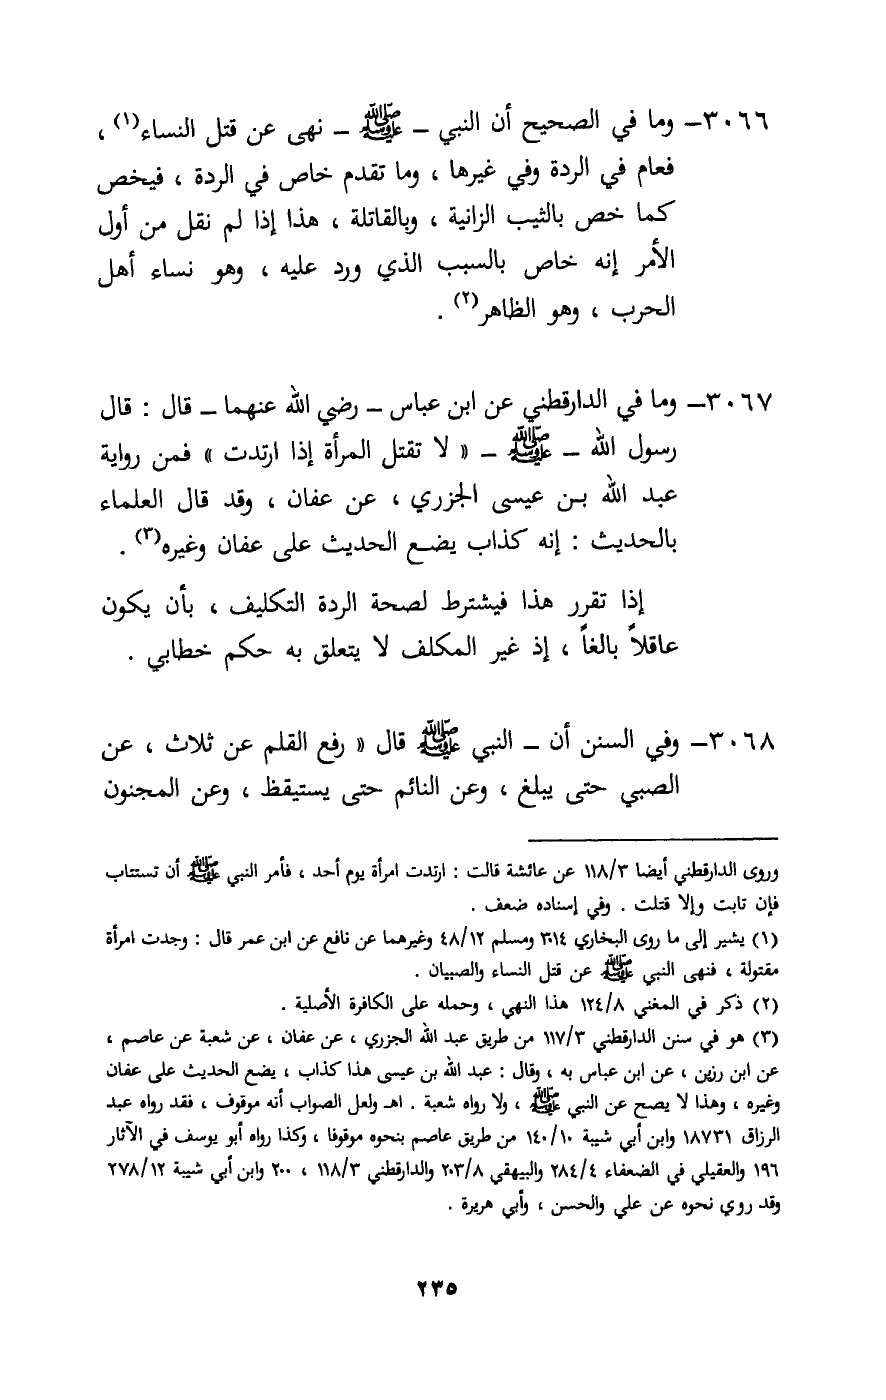 ٣٠٦٦ – وما في الصحيح أن النبي – ﷺ – نهى عن قتل النساء(١) ،
فعام في الردة وفي غيرها ، وما تقدم خاص في الردة ، فيخص
كما خص بالثيب الزانية ، وبالقاتلة ، هذا إذا لم نقل من أول
الأمر إنه خاص بالسبب الذي ورد عليه ، وهو نساء أهل
الحرب ، وهو الظاهر(٢) .
٣٠٦٧ – وما في الدارقطني عن ابن عباس – رضي الله عنهما – قال : قال
رسول الله – ﷺ – « لا تقتل المرأة إذا ارتدت » فمن رواية
عبد الله بن عيسى الجزري ، عن عفان ، وقد قال العلماء
بالحديث : إنه كذاب يضع الحديث على عفان وغيره(٣) .
إذا تقرر هذا فيشترط لصحة الردة التكليف ، بأن يكون
عاقلاً بالغاً ، إذ غير المكلف لا يتعلق به حكم خطابي .
٣٠٦٨ – وفي السنن أن – النبي ﷺ قال « رفع القلم عن ثلاث ، عن
الصبي حتى يبلغ ، وعن النائم حتى يستيقظ ، وعن المجنون
وروى الدارقطني أيضا ١١٨/٣ عن عائشة قالت : ارتدت امرأة يوم أحد ، فأمر النبي ﷺ أن تستتاب
فإن تابت وإلا قتلت . وفي إسناده ضعف .
(١) يشير إلى ما روى البخاري ٣٠١٤ ومسلم ٤٨/١٢ وغيرهما عن نافع عن ابن عمر قال : وجدت امرأة
مقتولة ، فنهى النبي ﷺ عن قتل النساء والصبيان .
(٢) ذكر في المغني ١٢٤/٨ هذا النهي ، وحمله على الكافرة الأصلية .
(٣) هو في سنن الدارقطني ١١٧/٣ من طريق عبد الله الجزري ، عن عفان ، عن شعبة عن عاصم ،
عن ابن رزين ، عن ابن عباس به ، وقال : عبد الله بن عيسى هذا كذاب ، يضع الحديث على عفان
وغيره ، وهذا لا يصح عن النبي ﷺ ، ولا رواه شعبة . اهـ ولعل الصواب أنه موقوف ، فقد رواه عبد
الرزاق ١٨٧٣١ وابن أبي شيبة ١٤٠/١٠ من طريق عاصم بنحوه موقوفا ، وكذا رواه أبو يوسف في الآثار
١٩٦ والعقيلي في الضعفاء ٢٨٤/٤ والبيهقي ٢٠٣/٨ والدارقطني ١١٨/٣ ، ٢٠٠ وابن أبي شيبة ٢٧٨/١٢
وقد روي نحوه عن علي والحسن ، وأبي هريرة .
٢٣٥